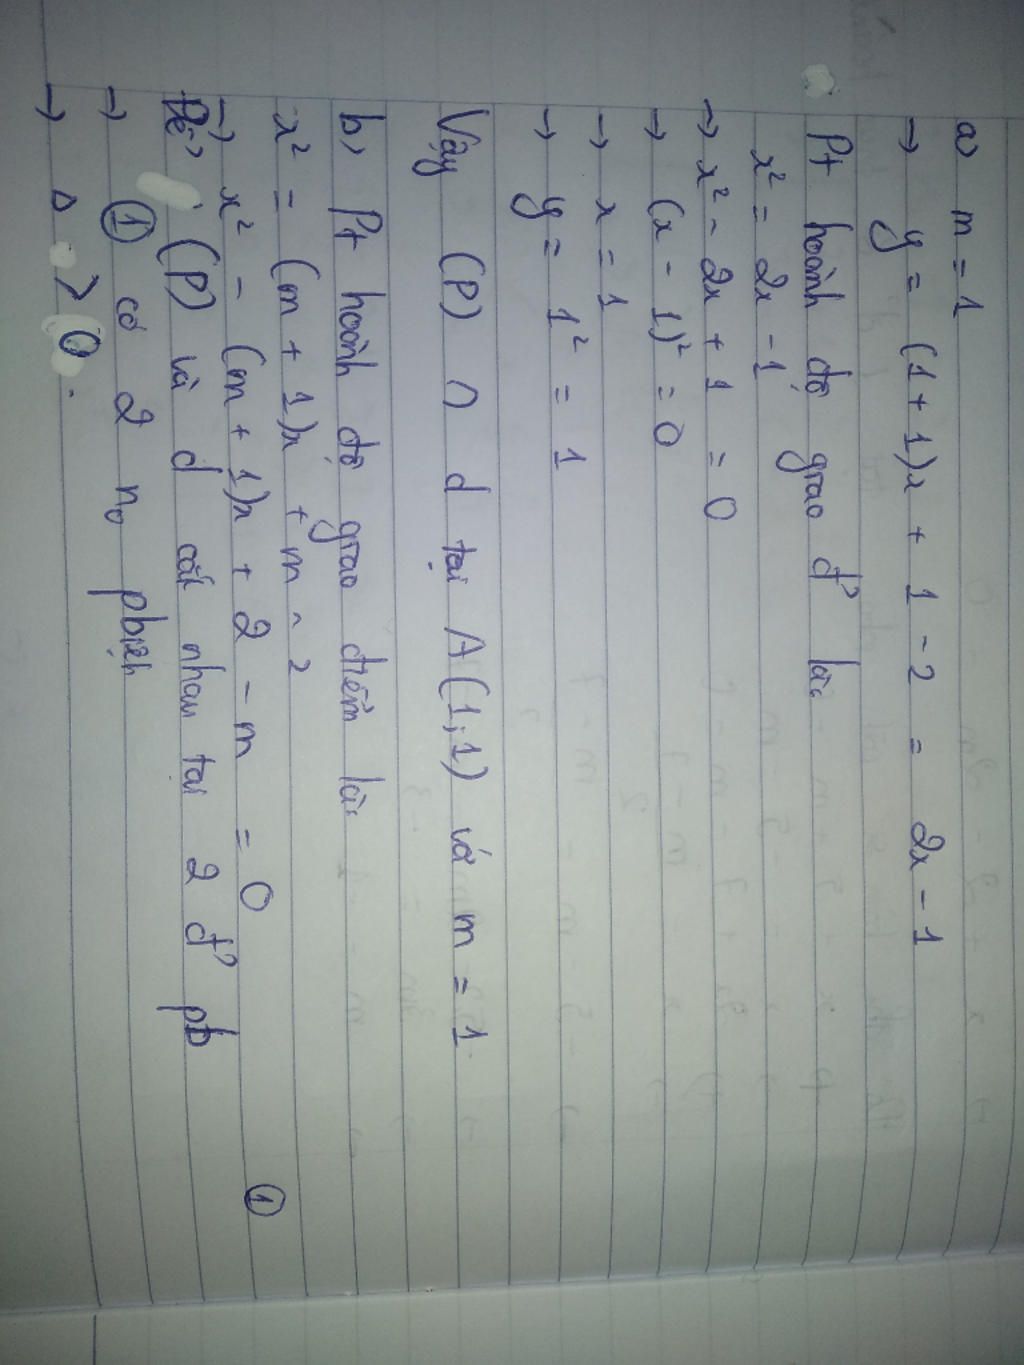 a) m = 1
→ y = (1 + 1)x + 1 - 2 = 2x - 1
Pt hoành độ giao đ' là:
x² = 2x - 1
→ x² - 2x + 1 = 0
→ (x - 1)² = 0
→ x = 1
→ y = 1² = 1
Vậy (P) ∩ d tại A(1;1) với m = 1
b) Pt hoành độ giao điểm là:
x² = (m + 1)x + m - 2
→ x² - (m + 1)x + 2 - m = 0 ①
Để (P) và d cắt nhau tại 2 đ' pb
→ ① có 2 n₀ pbiệt
→ Δ > 0.